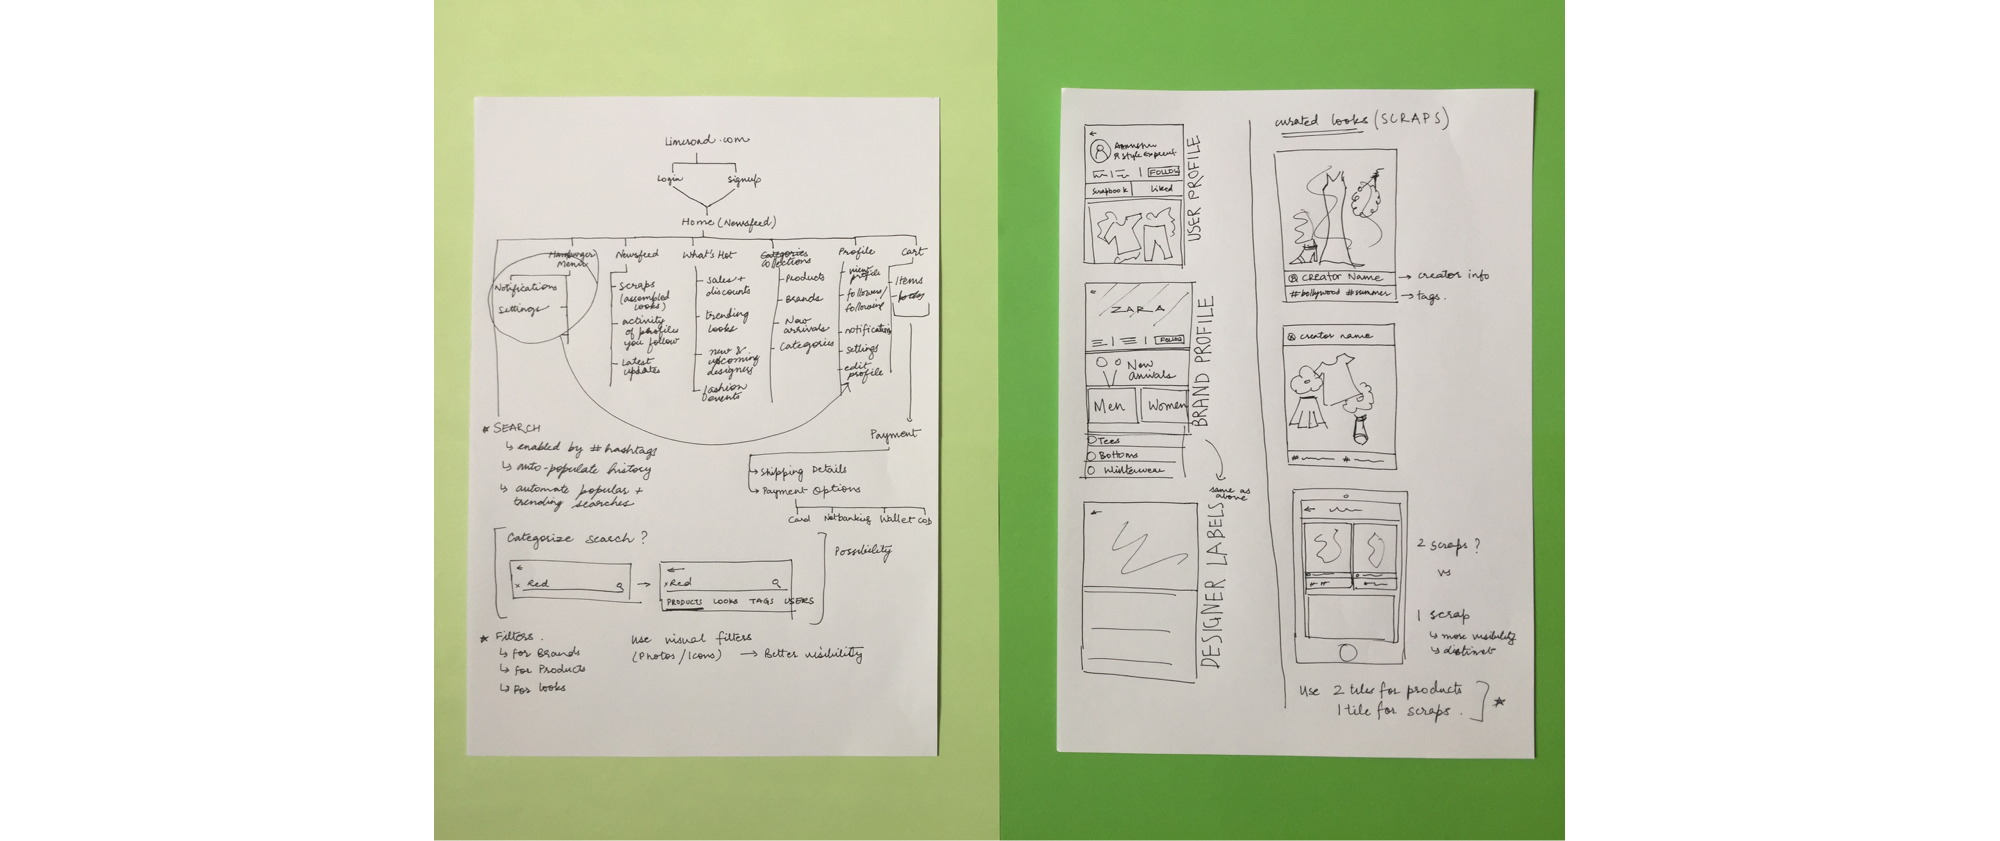 Limeroad.com
Login
Signup
Home (Newsfeed)
Hamburger
Menu
Notifications
Settings
Newsfeed
scraps
(assembled
looks)
activity
of profiles
you follow
Latest
updates
What's Hot
sales +
discounts
trending
looks
new &
upcoming
designers
fashion
events
Categories
Collections
Products
Brands
New
arrivals
Categories
Profile
view
profile
followers/
following
notification
settings
edit
profile
Cart
Items
Payment
Shipping Details
Payment Options
Card
Netbanking
Wallet
COD
* SEARCH
↳ enabled by #hashtags
↳ auto-populate history
↳ automate popular +
trending searches
Categorize search?
x Red
x Red
PRODUCTS LOOKS TAGS USERS
Possibility
* Filters.
↳ For Brands
↳ For Products
↳ For looks
Use visual filters
(Photos/Icons) → Better visibility
R Style Expert
FOLLOW
Scrapbook
Liked
USER PROFILE
ZARA
FOLLOW
New
arrivals
Men
Women
Tees
Bottoms
Winterwear
BRAND PROFILE
same as
above
DESIGNER LABELS
curated looks (SCRAPS)
CREATOR NAME → creator info
#bollywood #summer → tags.
creator name
# #
2 scraps?
vs
1 scrap
↳ more visibility
↳ distinct
Use 2 tiles for products
1 tile for scraps. *